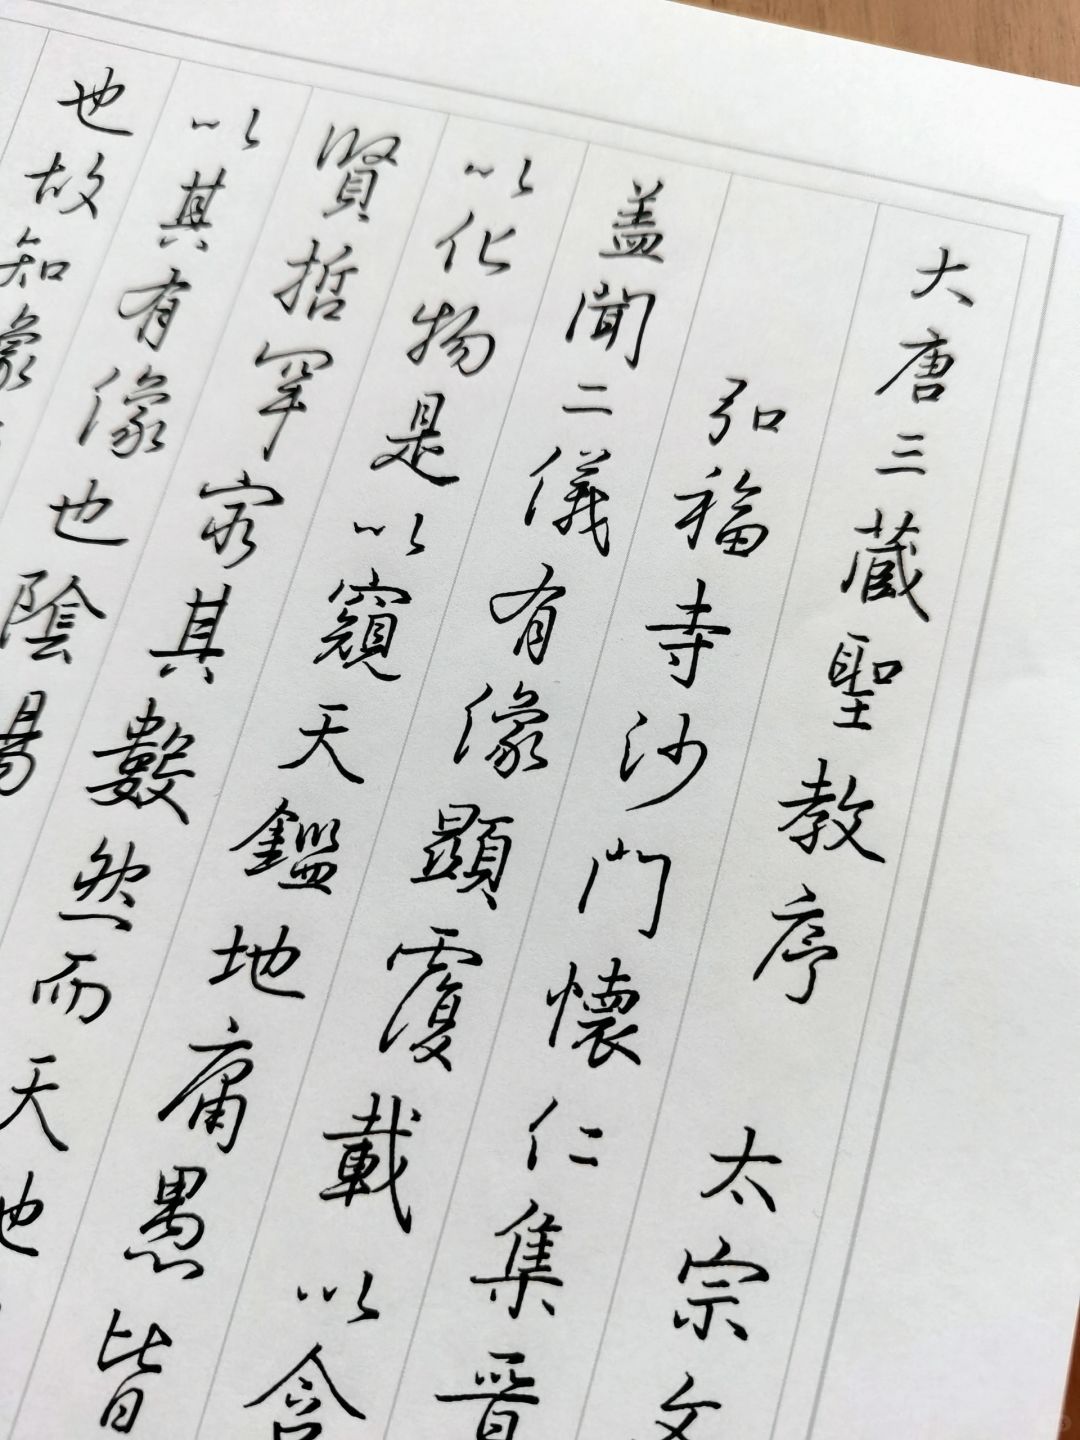 大唐三蔵聖教序 太宗文
弘福寺沙門懷仁集晉
盖聞二儀有像顯覆載以含
以化物是以窺天鑑地庸愚皆
賢哲罕窮其數然而天地
以其有像也陰陽
也故知象